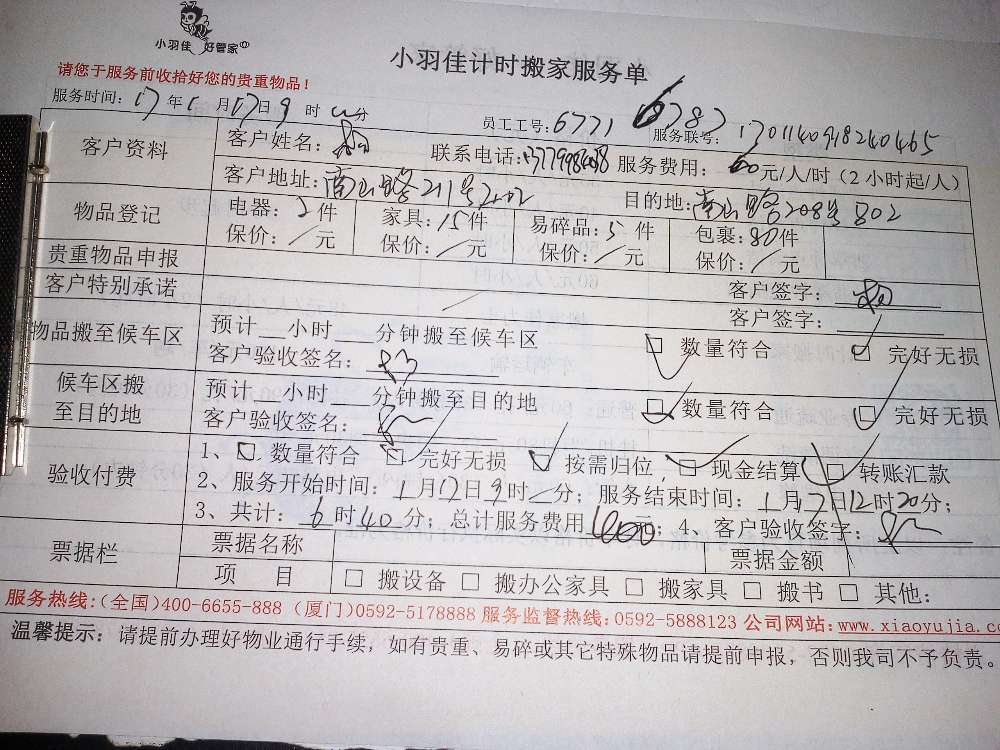 小羽佳 好管家
小羽佳计时搬家服务单
请您于服务前收拾好您的贵重物品！
服务时间：17年1月17日9时 分
员工工号：6771 6787 服务联号：1701140918240465
客户资料 客户姓名： 联系电话： 服务费用：60元/人/时（2小时起/人）
客户地址：南山路211号202 目的地：南山路208号802
物品登记 电器：2件 家具：15件 易碎品：5件 包裹：80件
保价：/元 保价：/元 保价：/元 保价：/元
贵重物品申报 客户签字：
客户特别承诺 客户签字：
物品搬至候车区 预计 小时 分钟搬至候车区 数量符合 完好无损
客户验收签名：
候车区搬至目的地 预计 小时 分钟搬至目的地 数量符合 完好无损
客户验收签名：
验收付费 1、 数量符合 完好无损 按需归位 现金结算 转账汇款
2、服务开始时间：1月17日9时 分；服务结束时间：1月 日12时20分；
3、共计：6时40分；总计服务费用 元；4、客户验收签字：
票据栏 票据名称 票据金额
项 目 □ 搬设备 □ 搬办公家具 □ 搬家具 □ 搬书 □ 其他：
服务热线：（全国）400-6655-888（厦门）0592-5178888 服务监督热线：0592-5888123 公司网站：www.xiaoyujia.co
温馨提示：请提前办理好物业通行手续，如有贵重、易碎或其它特殊物品请提前申报，否则我司不予负责。